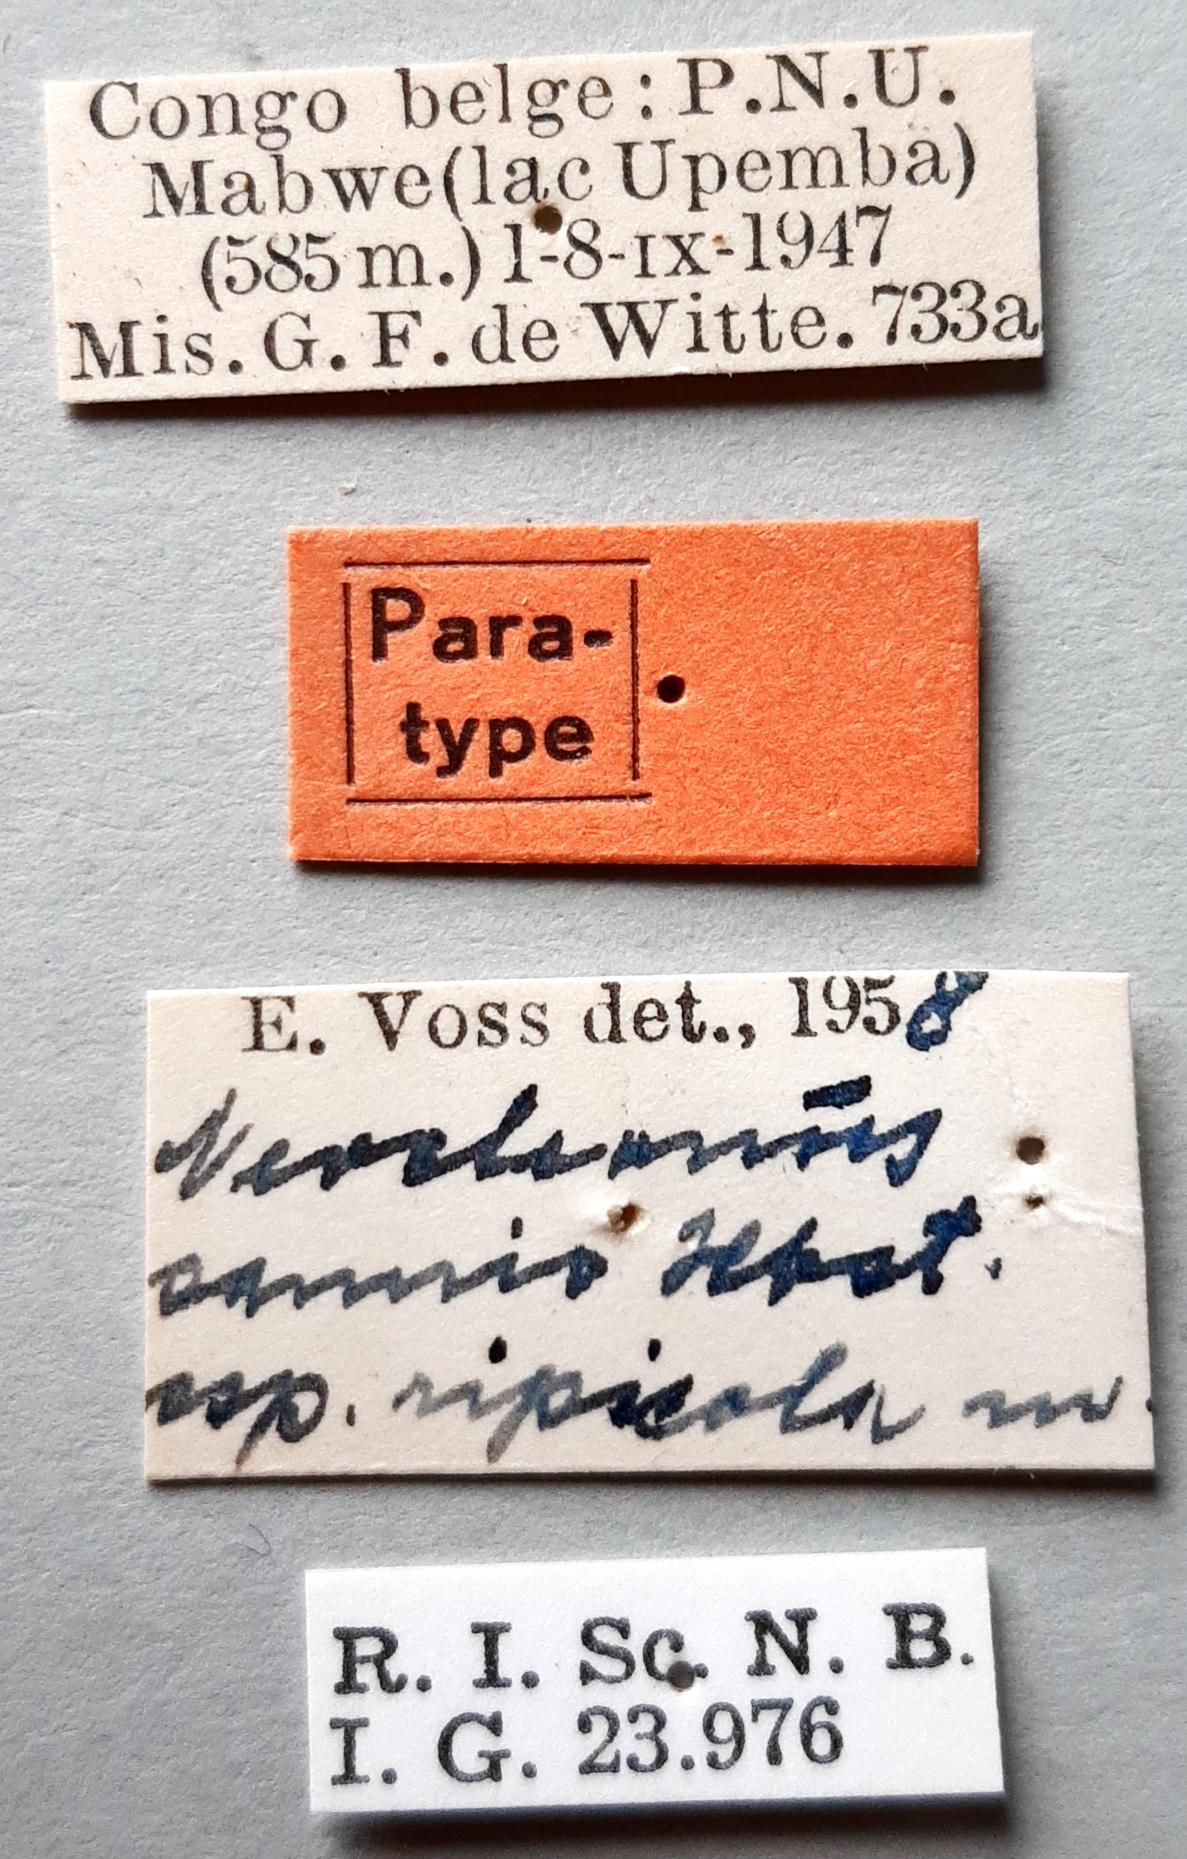 Congo belge: P.N.U.
Mabwe (lac Upemba)
(585 m.) 1-8-IX-1947
Mis. G. F. de Witte. 733a
Para-
type
E. Voss det., 1958
Neocleonus
sannio Hbst.
ssp. ripicola
R. I. Sc. N. B.
I. G. 23.976